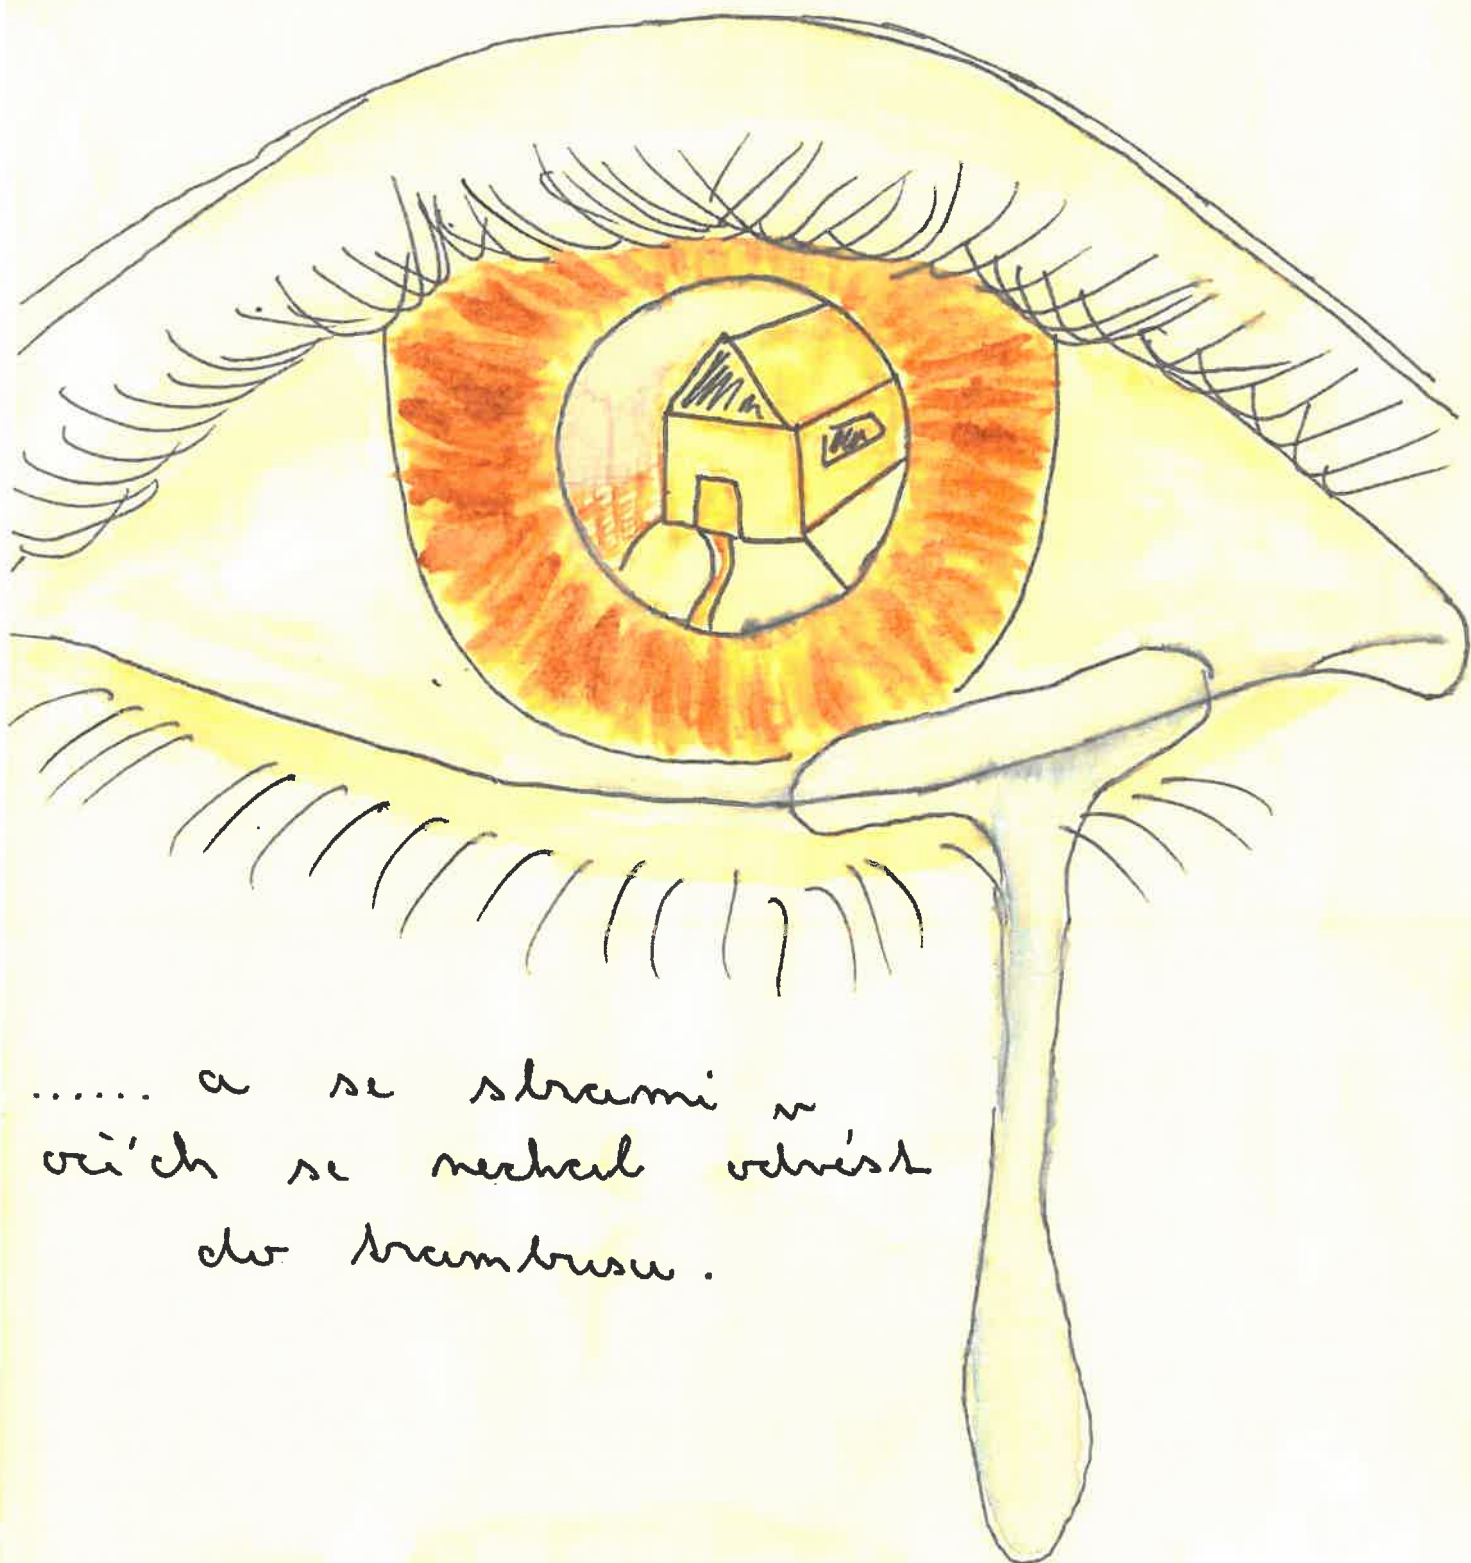 ...... a se slzami v
očích se nechal odvést
do trambusu.